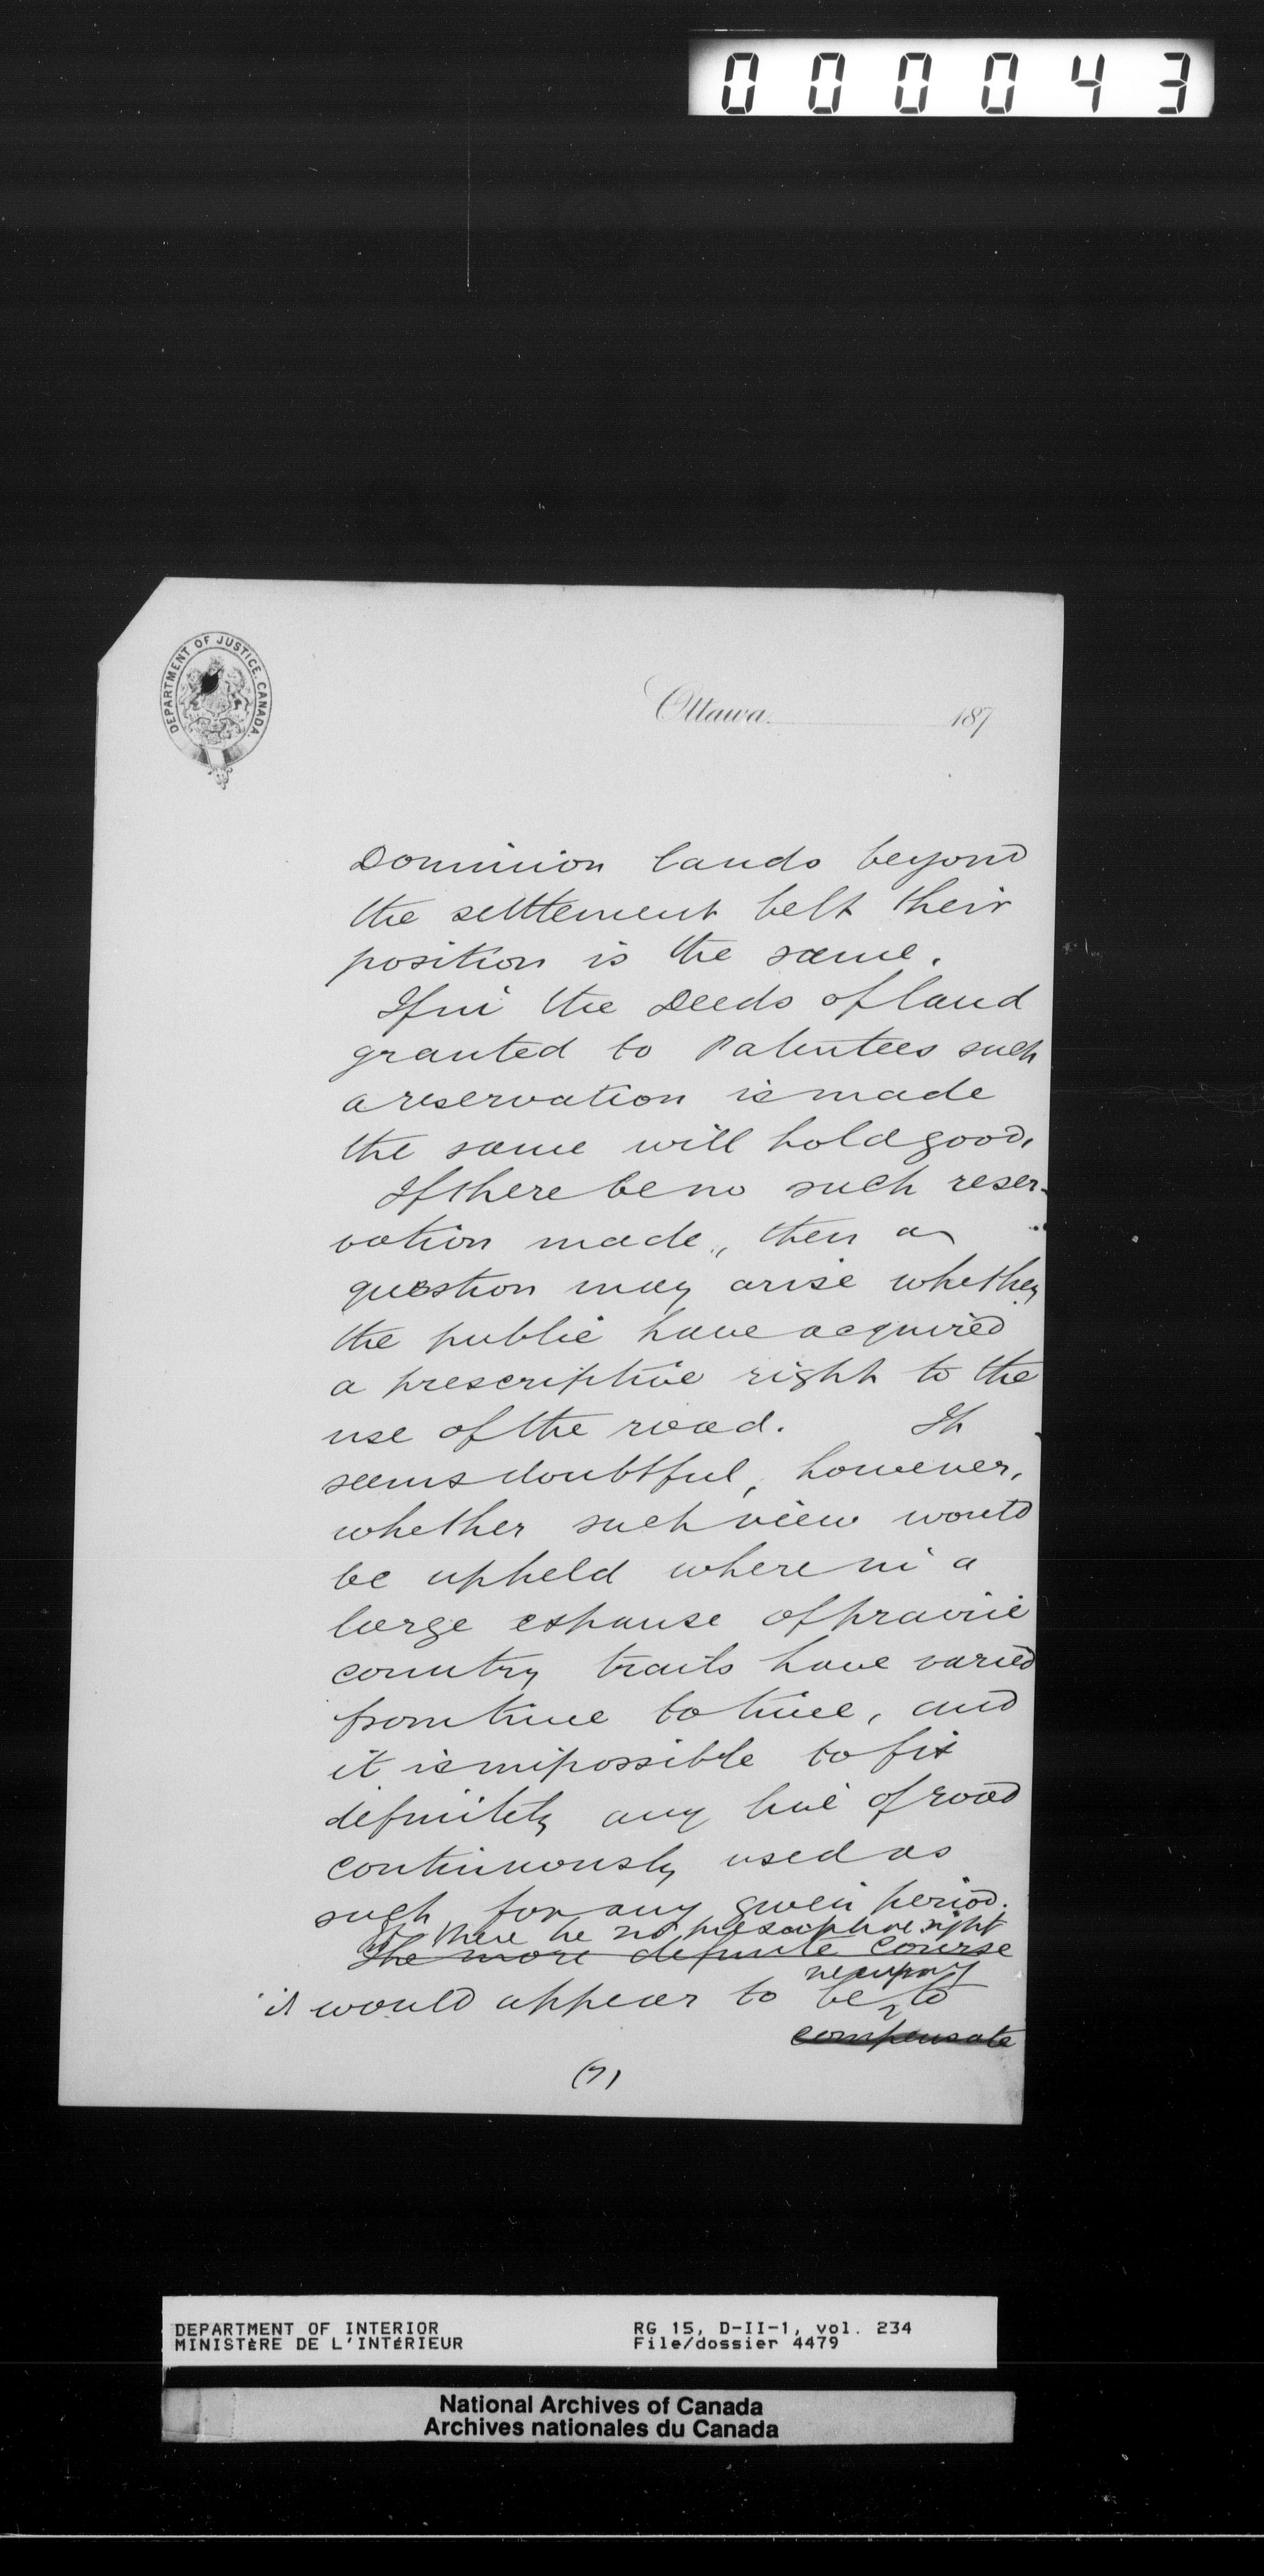 000043
DEPARTMENT OF JUSTICE, CANADA.
Ottawa. 187
Dominion lands beyond
the settlement belt their
position is the same.
If in the Deeds of land
granted to Patentees such
a reservation is made
the same will hold good.
If there be no such reser-
vation made, then a
question may arise whether
the public have acquired
a prescriptive right to the
use of the road. It
seems doubtful, however,
whether such view would
be upheld where in a
large expanse of prairie
country trails have varied
from time to time, and
it is impossible to fix
definitely any line of road
continuously used as
such for any given period.
If there be no prescriptive right
The more definite course
necessary
it would appear to be to
compensate
(7)
DEPARTMENT OF INTERIOR RG 15, D-II-1, vol. 234
MINISTÈRE DE L'INTÉRIEUR File/dossier 4479
National Archives of Canada
Archives nationales du Canada